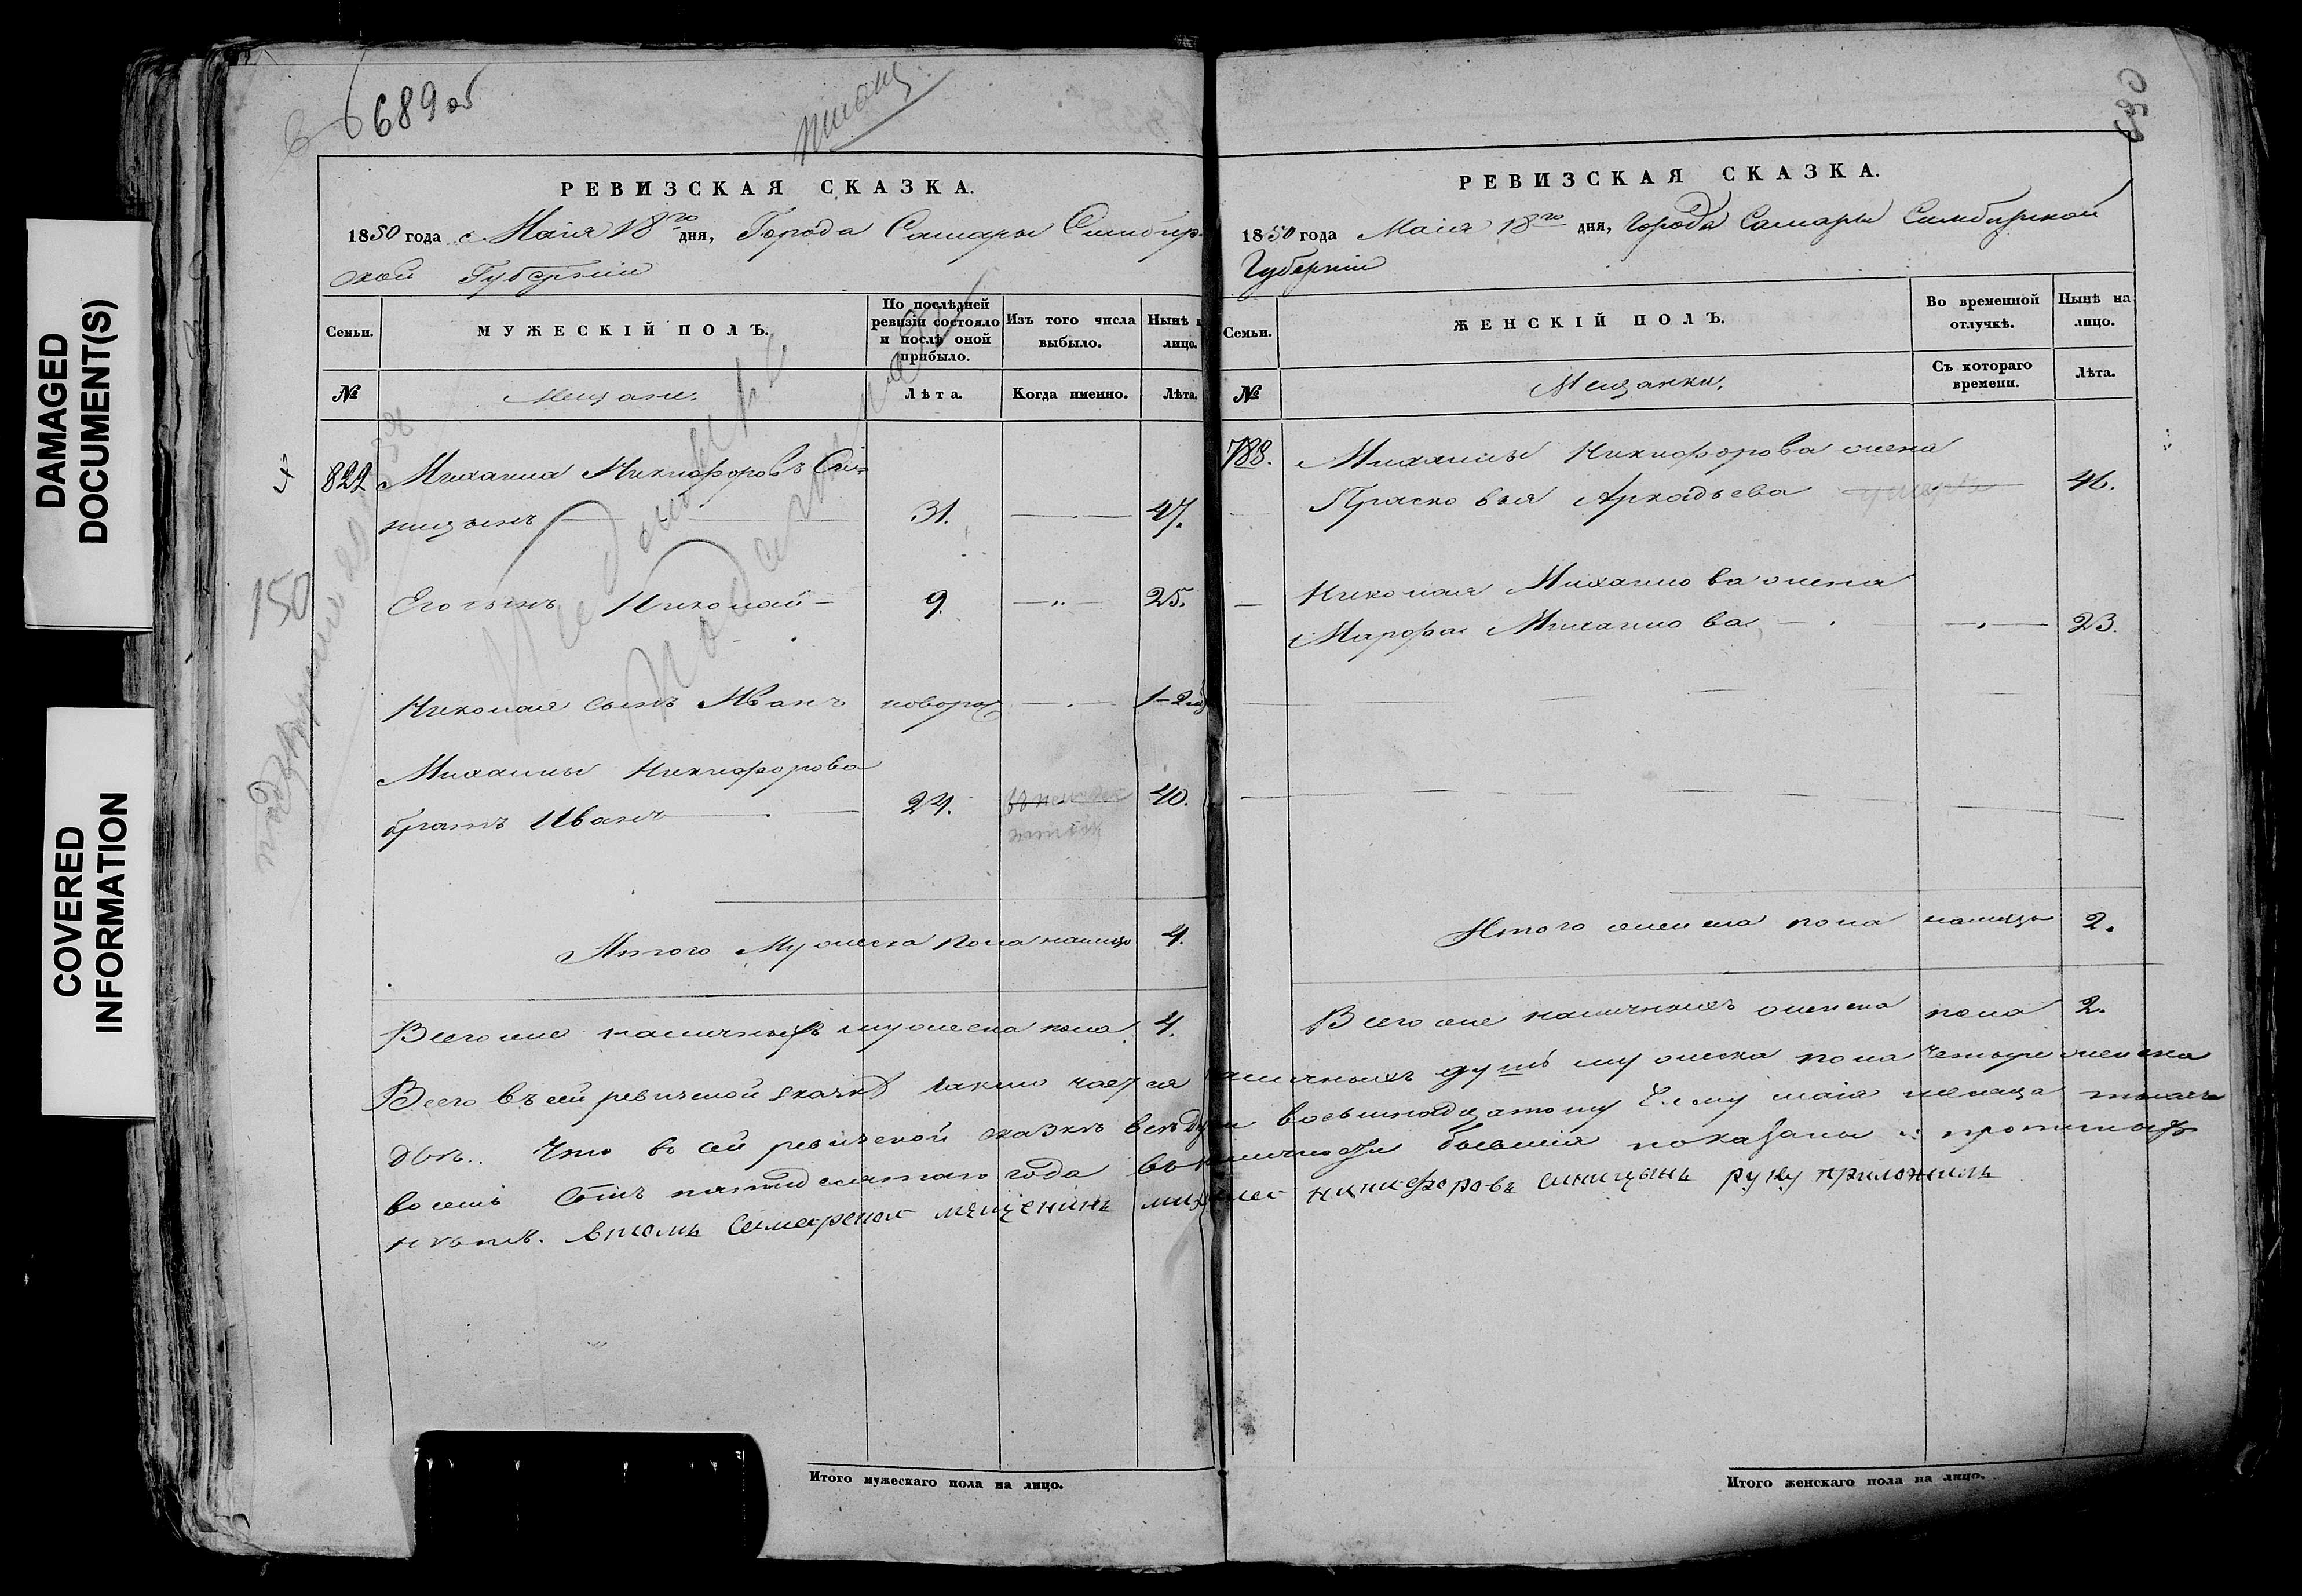 DAMAGED
DOCUMENT(S)
COVERED
INFORMATION
689 об
150
РЕВИЗСКАЯ СКАЗКА.
1850 года Маія 18го дня, Города Самары Симбир-
ской Губерніи
Семьи.
МУЖЕСКІЙ ПОЛЪ.
По послѣдней
ревизіи состояло
и послѣ оной
прибыло.
Изъ того числа
выбыло.
Нынѣ
лицо.
№
Мещане.
Лѣта.
Когда именно.
Лѣта.
822 Михаила Никифоровъ Си-
ницынъ 31. 47.
Его сынъ Николай 9. 25.
Николая сынъ Иванъ новорож 1-2
Михаилы Никифорова
братъ Иванъ 24. 40.
Итого Мужеска пола налицо 4.
Всего же наличныхъ мужеска пола 4.
Итого мужескаго пола на лицо.
690
РЕВИЗСКАЯ СКАЗКА.
1850 года Маія 18го дня, Города Самары Симбирской
Губерніи
Семьи.
ЖЕНСКІЙ ПОЛЪ.
Во временной
отлучкѣ.
Нынѣ на
лицо.
№
Мещанки.
Съ котораго
времени.
Лѣта.
788. Михаилы Никифорова жена
Прасковья Аркадьева 46.
Николая Михаилова жена
Марфа Михаилова 23.
Итого женска пола налицо 2.
Всего же наличныхъ женска пола 2.
Всего въ сей ревизской сказкѣ заключается наличныхъ душъ мужеска пола четыре женска
двѣ. Что въ сей ревизской сказкѣ всѣ души восьмнадцатому сему маія месяца тысяча
восемь сотъ пятидесятаго года въ наличности бывшія показаны и прописныхъ
нѣтъ. втомъ Самарской мещенинъ михаилъ никифоровъ синицынъ руку приложилъ
Итого женскаго пола на лицо.